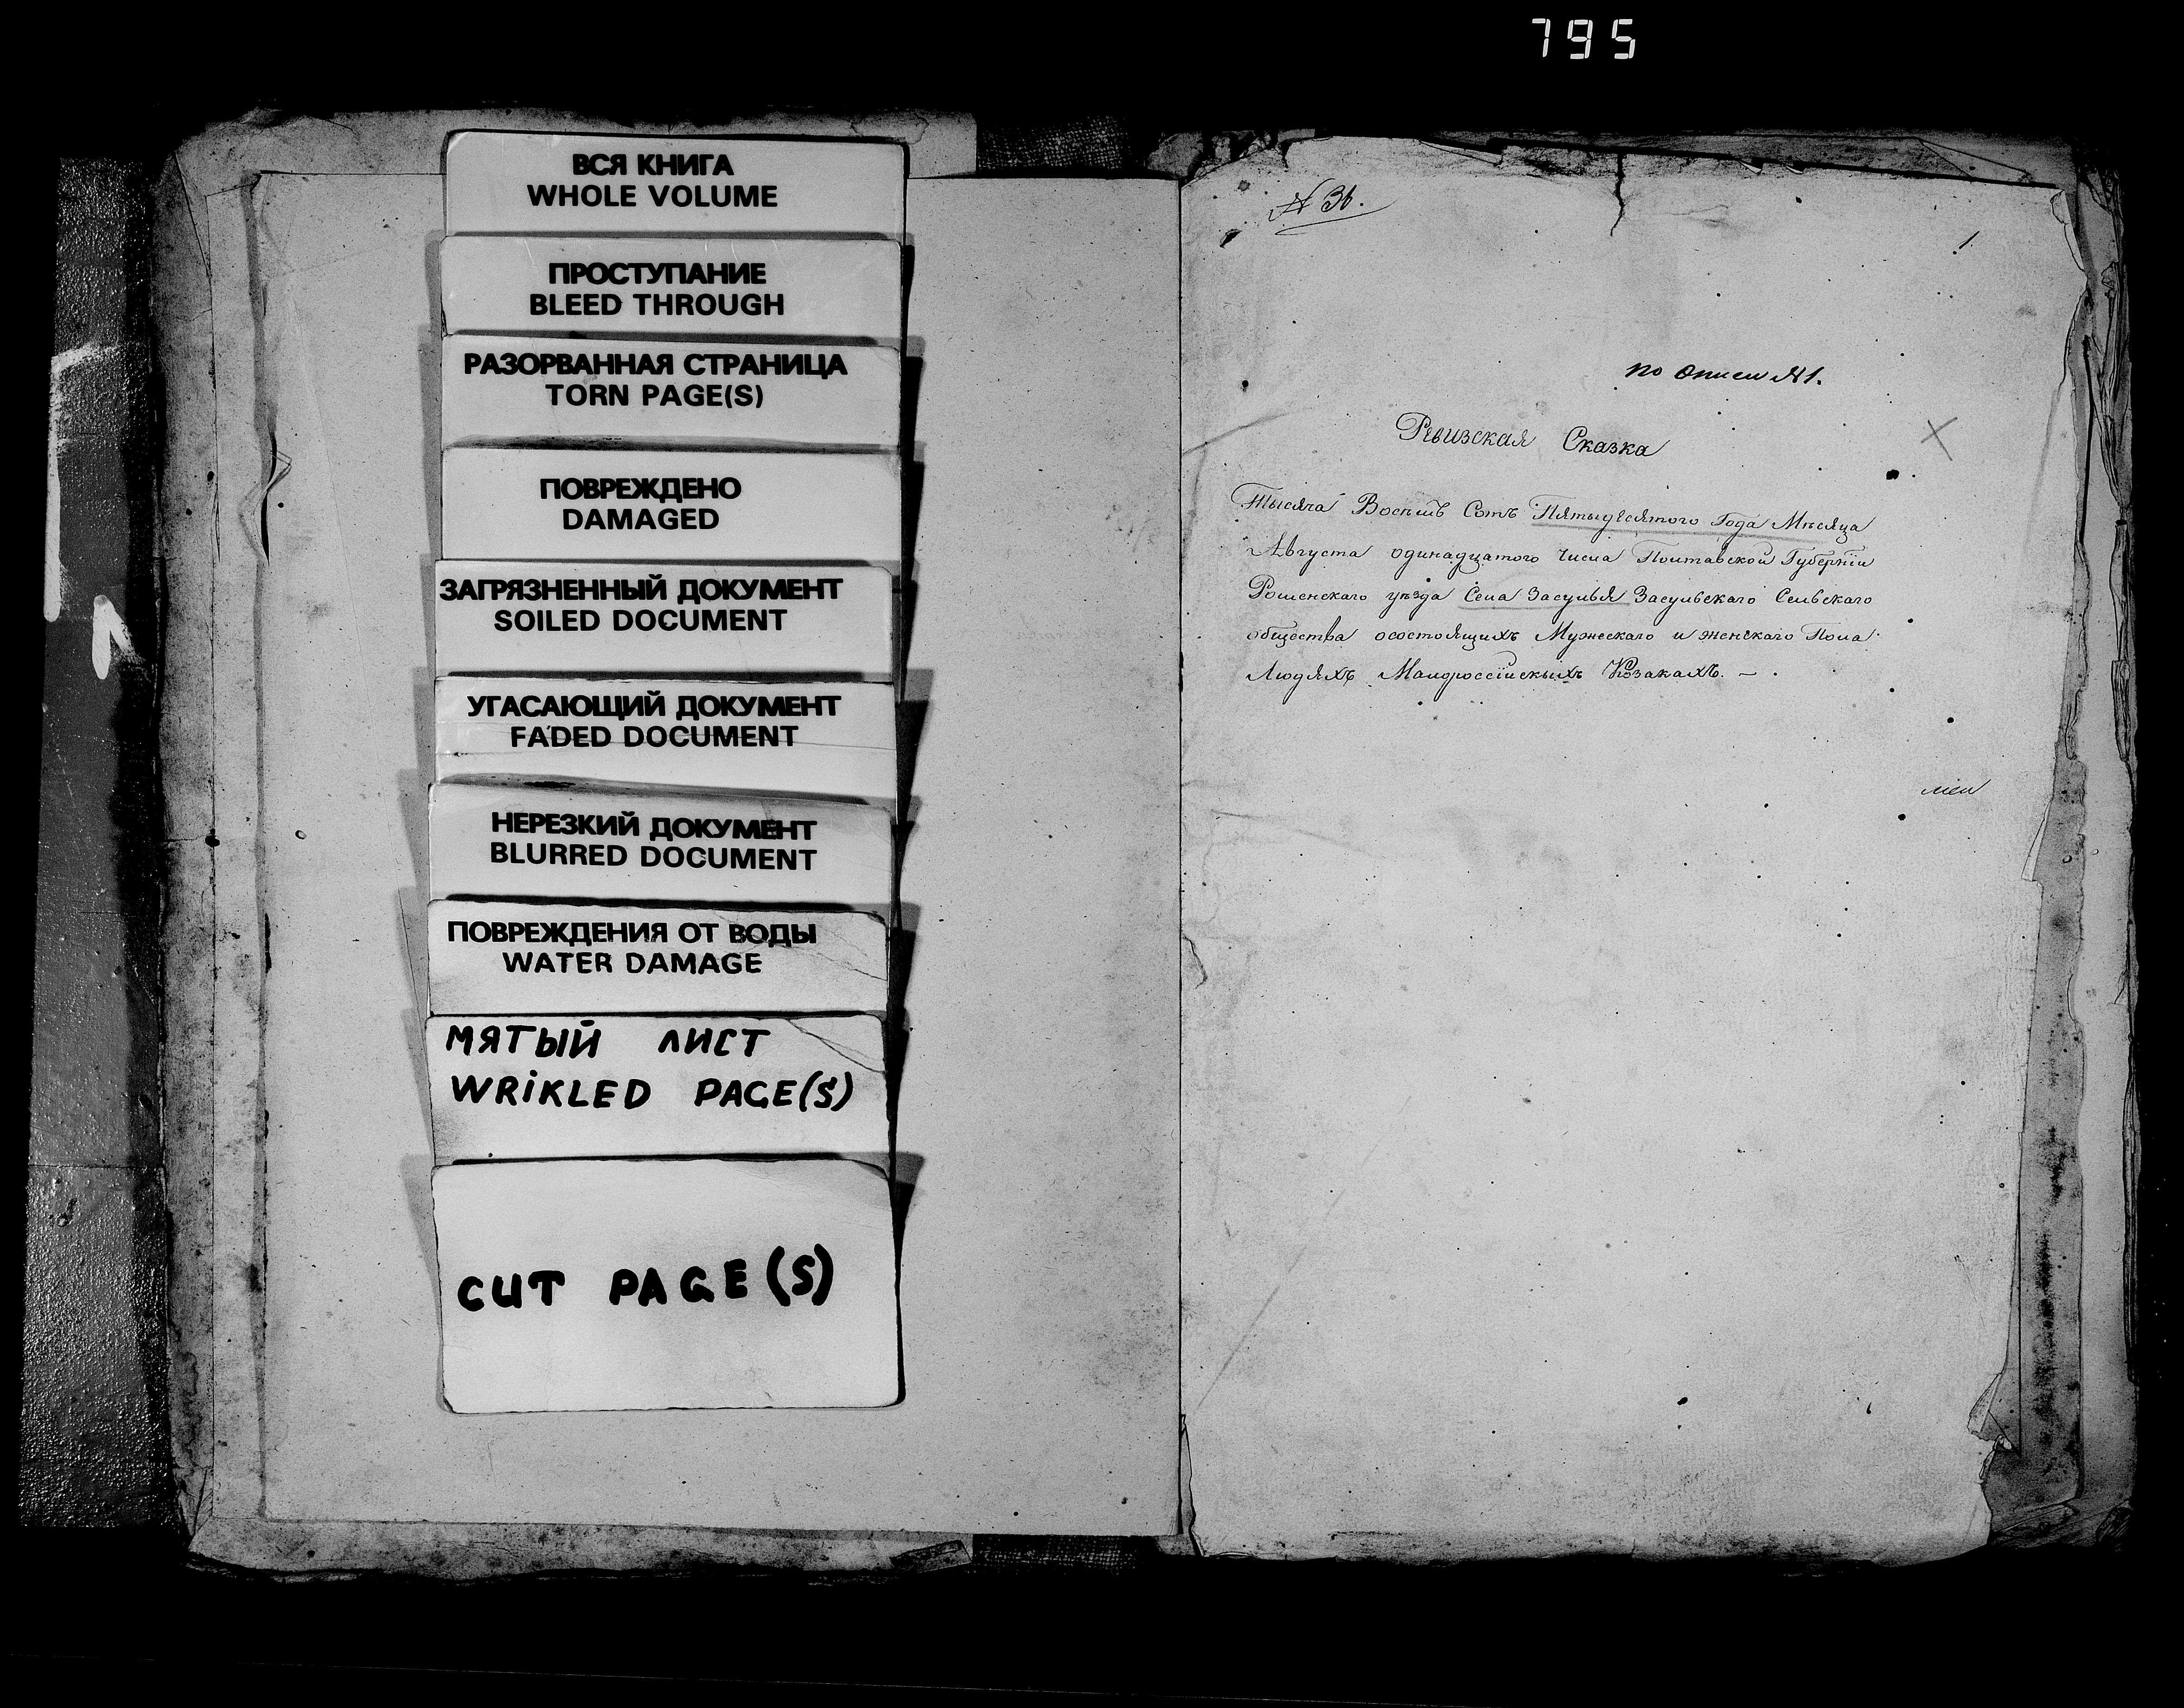 795
ВСЯ КНИГА
WHOLE VOLUME
ПРОСТУПАНИЕ
BLEED THROUGH
РАЗОРВАННАЯ СТРАНИЦА
TORN PAGE(S)
ПОВРЕЖДЕНО
DAMAGED
ЗАГРЯЗНЕННЫЙ ДОКУМЕНТ
SOILED DOCUMENT
УГАСАЮЩИЙ ДОКУМЕНТ
FADED DOCUMENT
НЕРЕЗКИЙ ДОКУМЕНТ
BLURRED DOCUMENT
ПОВРЕЖДЕНИЯ ОТ ВОДЫ
WATER DAMAGE
МЯТЫЙ ЛИСТ
WRIKLED PAGE(S)
CUT PAGE(S)
1.
по описи №1.
Ревизская Сказка
Тысяча Восемь Сотъ Пятьдесятого Года Мѣсяца
Августа одинадцатого числа Полтавской Губерніи
Роменскаго уѣзда Села Засулья Засульскаго Сельскаго
общества осостоящихъ Мужескаго и женскаго Пола
Людяхъ Малороссійскыхъ Козакахъ. —